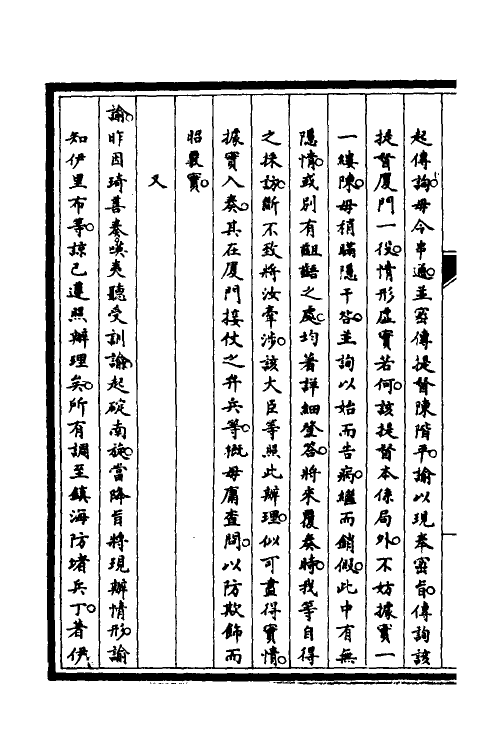 起傳詢。毋令串通。並密傳提督陳階平。諭以現奉密旨。傳詢該
提督廈門一役。情形虛實若何。該提督本係局外。不妨據實一
一縷陳。毋稍瞞隱干咎。並詢以始而告病。繼而銷假。此中有無
隱情。或別有齟齬之處。均著詳細登答。將來覆奏時。我等自得
之採訪。斷不致將汝牽涉。該大臣等照此辦理。似可盡得實情。
據實入奏。其在廈門接仗之弁兵等。概毋庸查問。以防欺飾而
昭覈實。
又
諭。昨因琦善奏。𠸄夷聽受訓諭。起碇南旋。當降旨將現辦情形。諭
知伊里布等。諒已遵照辦理矣。所有調至鎮海防堵兵丁。著伊